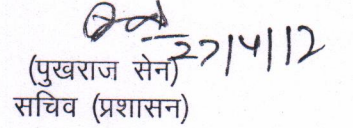 27/4/12
(पुखराज सेन)
सचिव (प्रशासन)